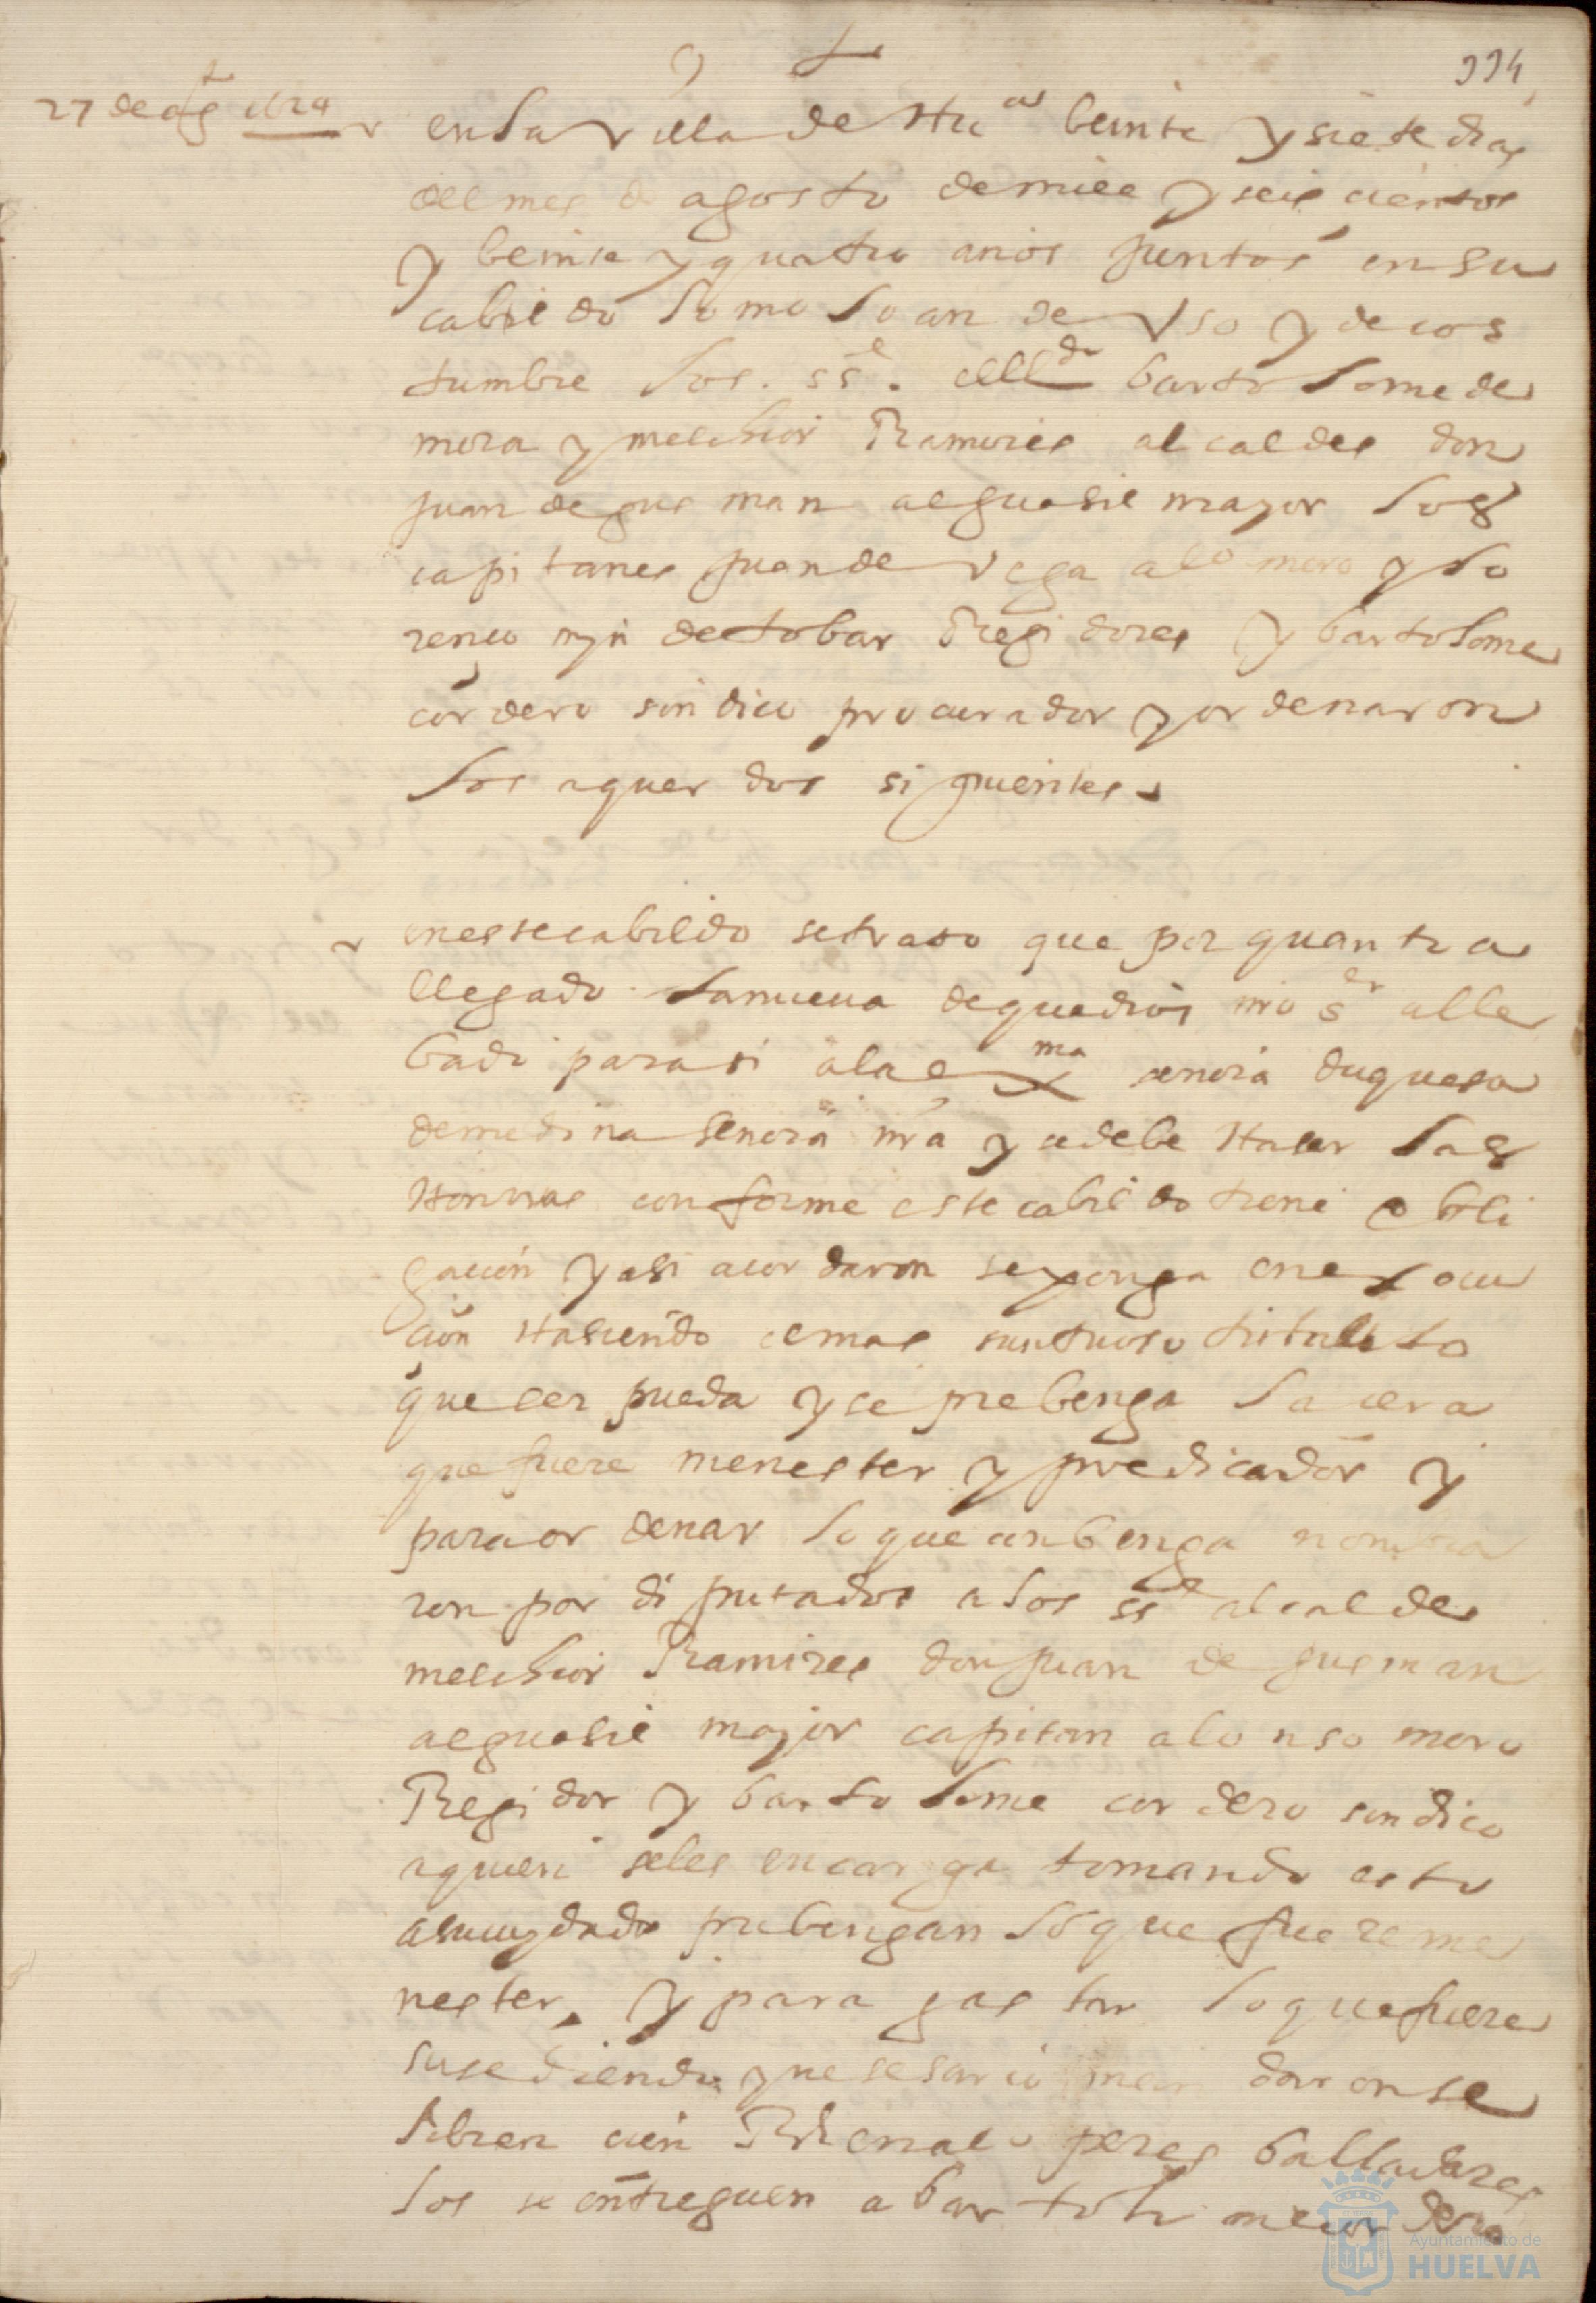 334
27 de agto 1624
en la villa de Hua beinte y siete dias
del mes de agosto de mill y seis cientos
y beinte y quatro años juntos en su
cabildo como lo an de vso y de cos
tumbre los ss.es lldo bartolome de
mora y melchior Ramires alcaldes don
juan de gusman alguasil mayor los
capitanes juan de vega alo moro y lo
renco mjn de tobar Regidores y bartolome
cordero sindico procurador y ordenaron
los aquerdos siguientes
en este cabildo se trato que por quanto a
llegado la nueua de que dios nro sr a lle
bado para si a la exma senora duquesa
de medina senora nra y se debe Haser las
Honrras conforme este cabildo tiene obli
gacion y asi acordaron se ponga en exocu
cion Hasiendo el mas suntuoso titulo
que ser pueda y se prebenga la cera
que fuere menester y predicador y
para ordenar lo que conbenga nombra
ron por diputados a los sses alcalde
melchior Ramires don juan de gusman
alguasil mayor capitan alonso moro
Regidor y bartolome cordero sindico
a quien se les encarga tomando esto
a su cuydado prebengan lo que fuere me
nester y para gastar lo que fuere
susediendo y nesesario mandaron se
libren cien Rs en alo peres balladares
los se entreguen a bartolome cordero
Ayuntamiento de
HUELVA